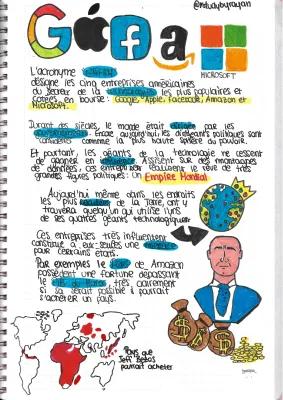 @mstudybyrayan
G a f a
MICROSOFT
L'acronyme
désigne les cinq entreprises américaines
du secteur de la les plus populaires et
cotées en bourse : Google, Apple, Facebook, Amazon et
Microsoft.
Durant des siècles, le monde était par les
Encore aujourd'hui, les dirigeants politiques sont
considérés comme la plus haute sphère du pouvoir.
Et pourtant, les géants de la technologie ne cessent
de gagner en Assises sur des montagnes
de données, ces entreprises réalisent le rêve de très
grandes figures politiques : Un Empire Mondial
Aujourd'hui même dans les endroits
les plus de la Terre, on y
trouvera quelqu'un qui utilise l'un
de ces quatre géants technologiques
Ces entreprises très influentes
constitue à eux-seules une
pour certains états.
Par exemples le de Amazon
possèdent une fortune dépassant
le très clairement
si sa serait possible il pourrait
s'acheter un pays.
Pays que
Jeff Bezos
pourrait acheter